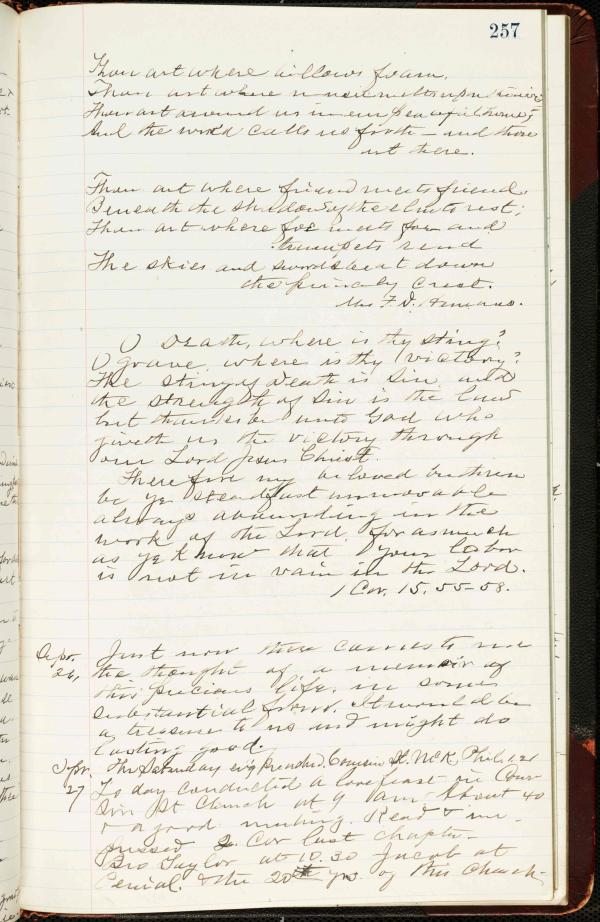 257
Thou art where billows foam,
Thou art where music melts upon the air;
Thou art around us in our peaceful home,
And the world calls us forth – and thou
art there.
Thou art where friend meets friend,
Beneath the shadow of the elm to rest;
Thou art where foe meets foe and
trumpets rend
The skies and swords beat down
the princely crest.
Mrs F. D. Hemans.
O Death, where is thy sting?
O grave where is thy victory?
The sting of Death is Sin, and
the strength of Sin is the law
but thanks be unto God who
giveth us the victory through
our Lord Jesus Christ.
Therefore my beloved brethren
be ye steadfast unmovable
always abounding in the
work of the Lord, for as much
as ye know that your labor
is not in vain in the Lord.
1 Cor. 15. 55-58.
Apr. Just now there comes to me
26, the thought of a memoir of
this precious life, in some
substantial form. It would be
a treasure to us and might do
lasting good.
Apr. This Saturday evg preached. Cousin McK. Phil. 1.21
27 To day conducted a lovefeast in
St Church at 9 am. About 40
& a good meeting. Read &
2 Cor last chapter.
Bro Taylor at 10.30 Jacob at
Penial. & the 20th yr. of this Church